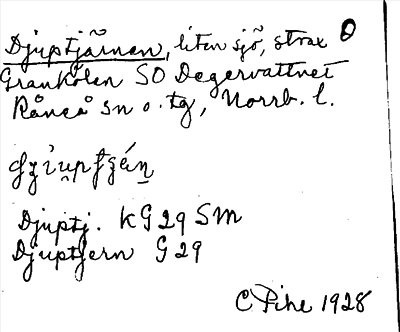 Djuptjärnen, liten sjö, strax O
Grankölen SO Degervattnet
Råneå sn o. tg, Norrb. l.
Djuptj. KG 29 SM
Djuptjern G 29
C Pihe 1928